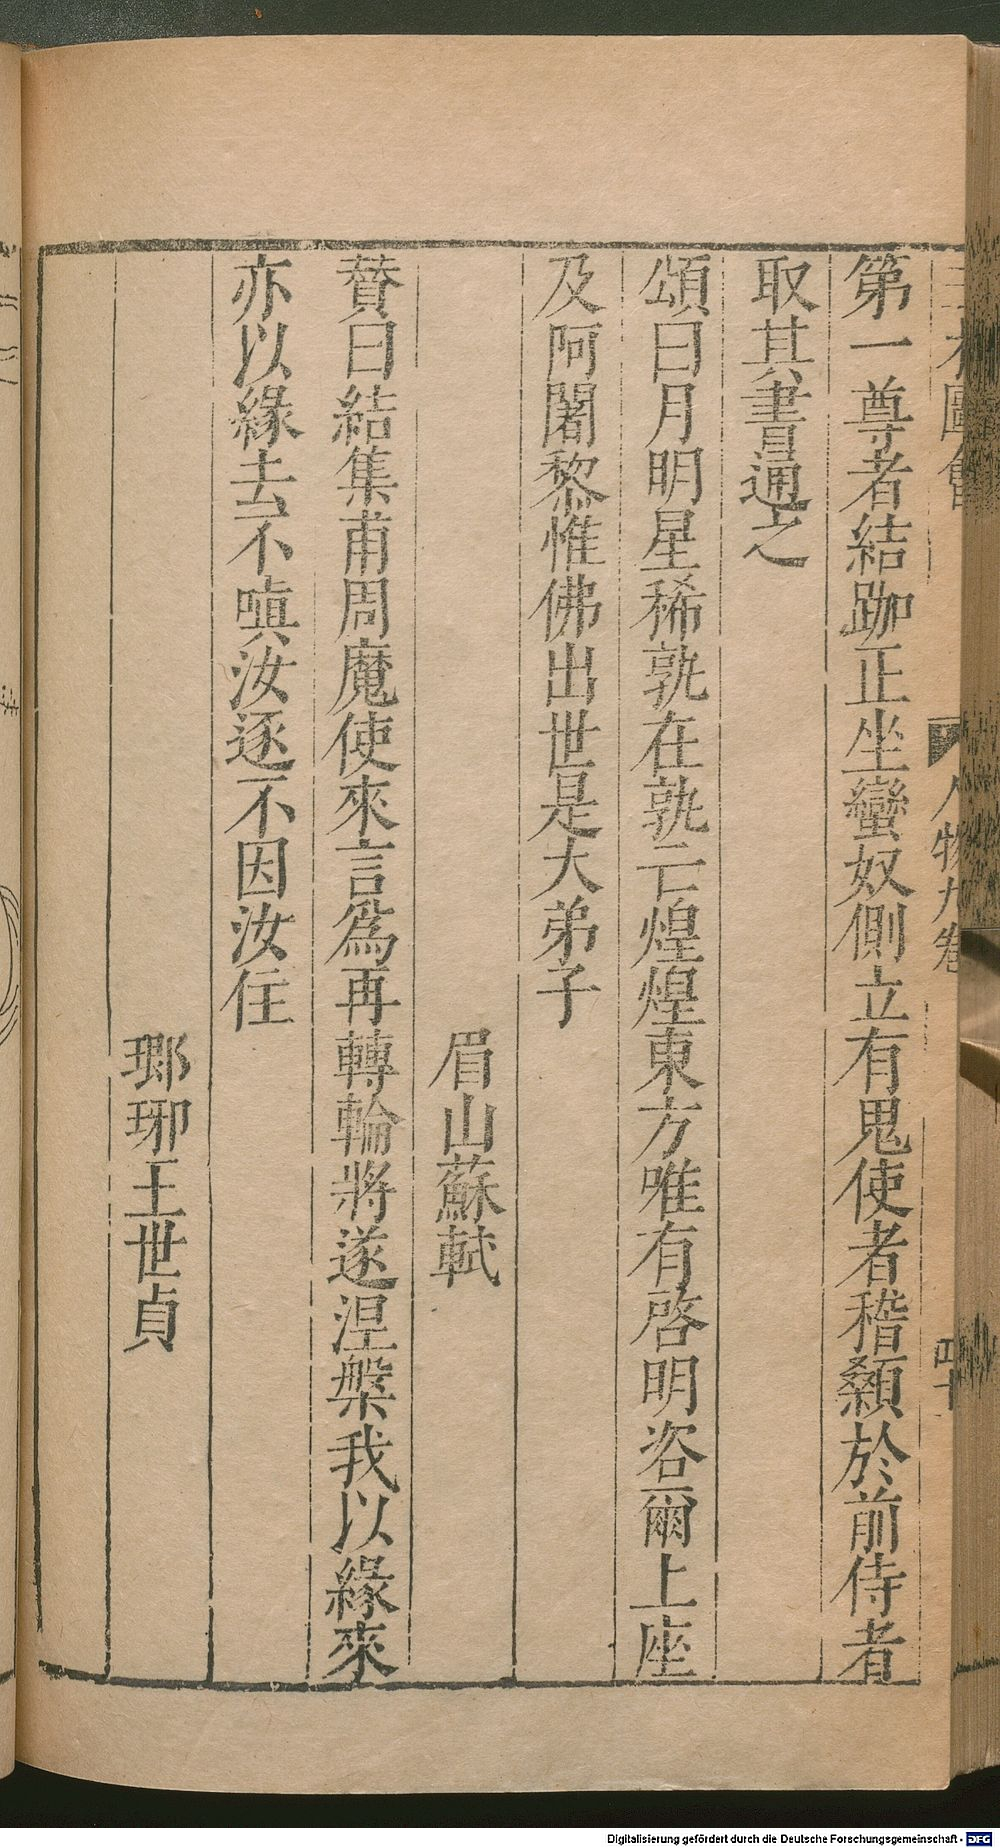 三才圖會 人物九卷 四十
第一尊者結跏正坐蠻奴側立有鬼使者稽顙於前侍者
取其書通之
頌曰月明星稀孰在孰亡煌煌東方唯有啓明咨爾上座
及阿闍黎惟佛出世是大弟子
眉山蘇軾
贊曰結集甫周魔使來言爲再轉輪將遂涅槃我以緣來
亦以緣去不嗔汝逐不因汝住
瑯琊王世貞
Digitalisierung gefördert durch die Deutsche Forschungsgemeinschaft - DFG